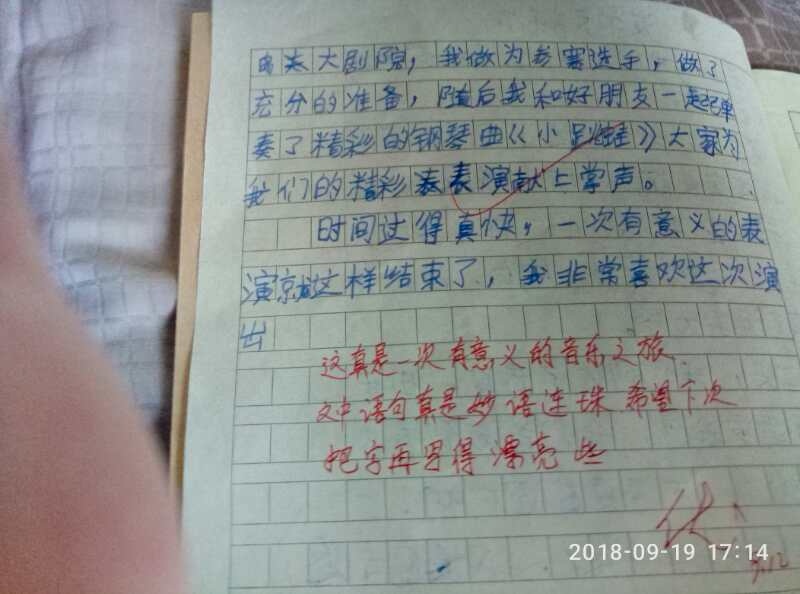 大剧院，我做为参赛选手，做了
充分的准备，随后我和好朋友一起弹
奏了精彩的钢琴曲《小跳蛙》大家为
我们的精彩表演献上掌声。
时间过得真快，一次有意义的表
演就这样结束了，我非常喜欢这次演
出
这真是一次有意义的音乐之旅.
文中语句真是妙语连珠 希望下次
把字再写得漂亮些
优
2018-09-19 17:14
9.12